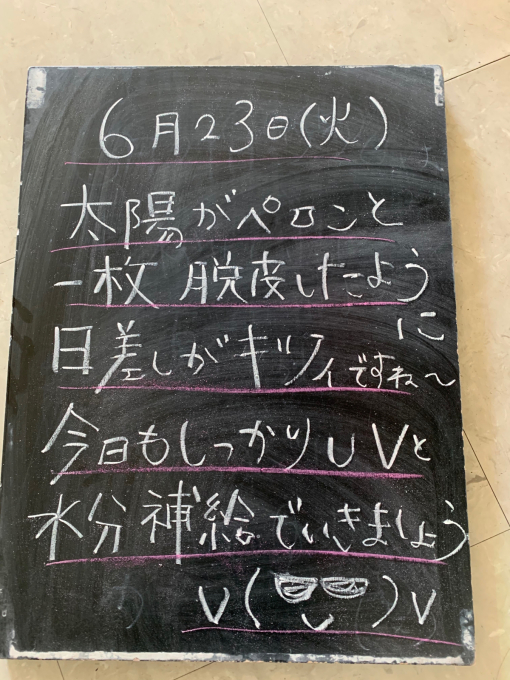 6月23日(火)
太陽がペロンと
一枚 脱皮したように
日差しがキツイですね〜
今日もしっかりUVと
水分補給でいきましょう